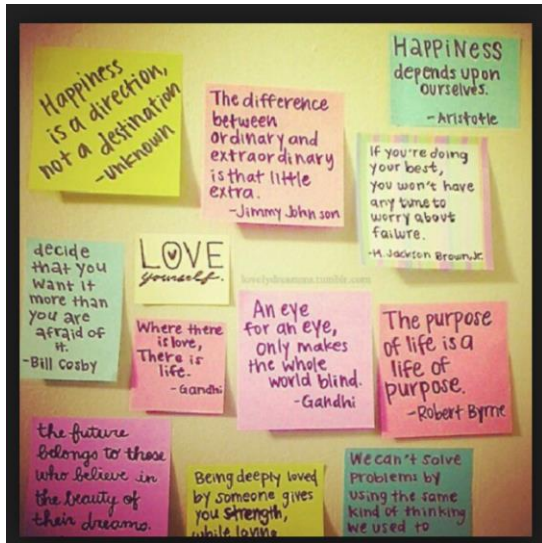 Happiness
is a direction,
not a destination
-unknown
The difference
between
ordinary and
extraordinary
is that little
extra.
-Jimmy Johnson
HAPPINESS
depends upon
ourselves.
-Aristotle
If you're doing
your best,
you won't have
any time to
worry about
failure.
-H. Jackson Brown, Jr.
decide
that you
want it
more than
you are
afraid of
it.
-Bill Cosby
LOVE
yourself.
Where there
is love,
There is
life.
-Gandhi
An eye
for an eye,
only makes
the whole
world blind.
-Gandhi
The purpose
of life is a
life of
purpose.
-Robert Byrne
the future
belongs to those
who believe in
the beauty of
their dreams.
Being deeply loved
by someone gives
you strength,
while loving
We can't solve
problems by
using the same
kind of thinking
we used to